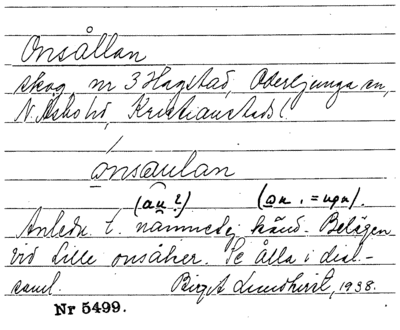 Onsållan
skog, nr 3 Hagstad, Oderljunga sn,
N. Åsbo hd, Kristianstads l.
ónsaulan
(au?) (on, = upn)
Anledn. t. namnet ej känd. Belägen
vid Lille onsåker. Se ålla i dial-
saml. Birgit Lundkvist, 1938.
Nr 5499.